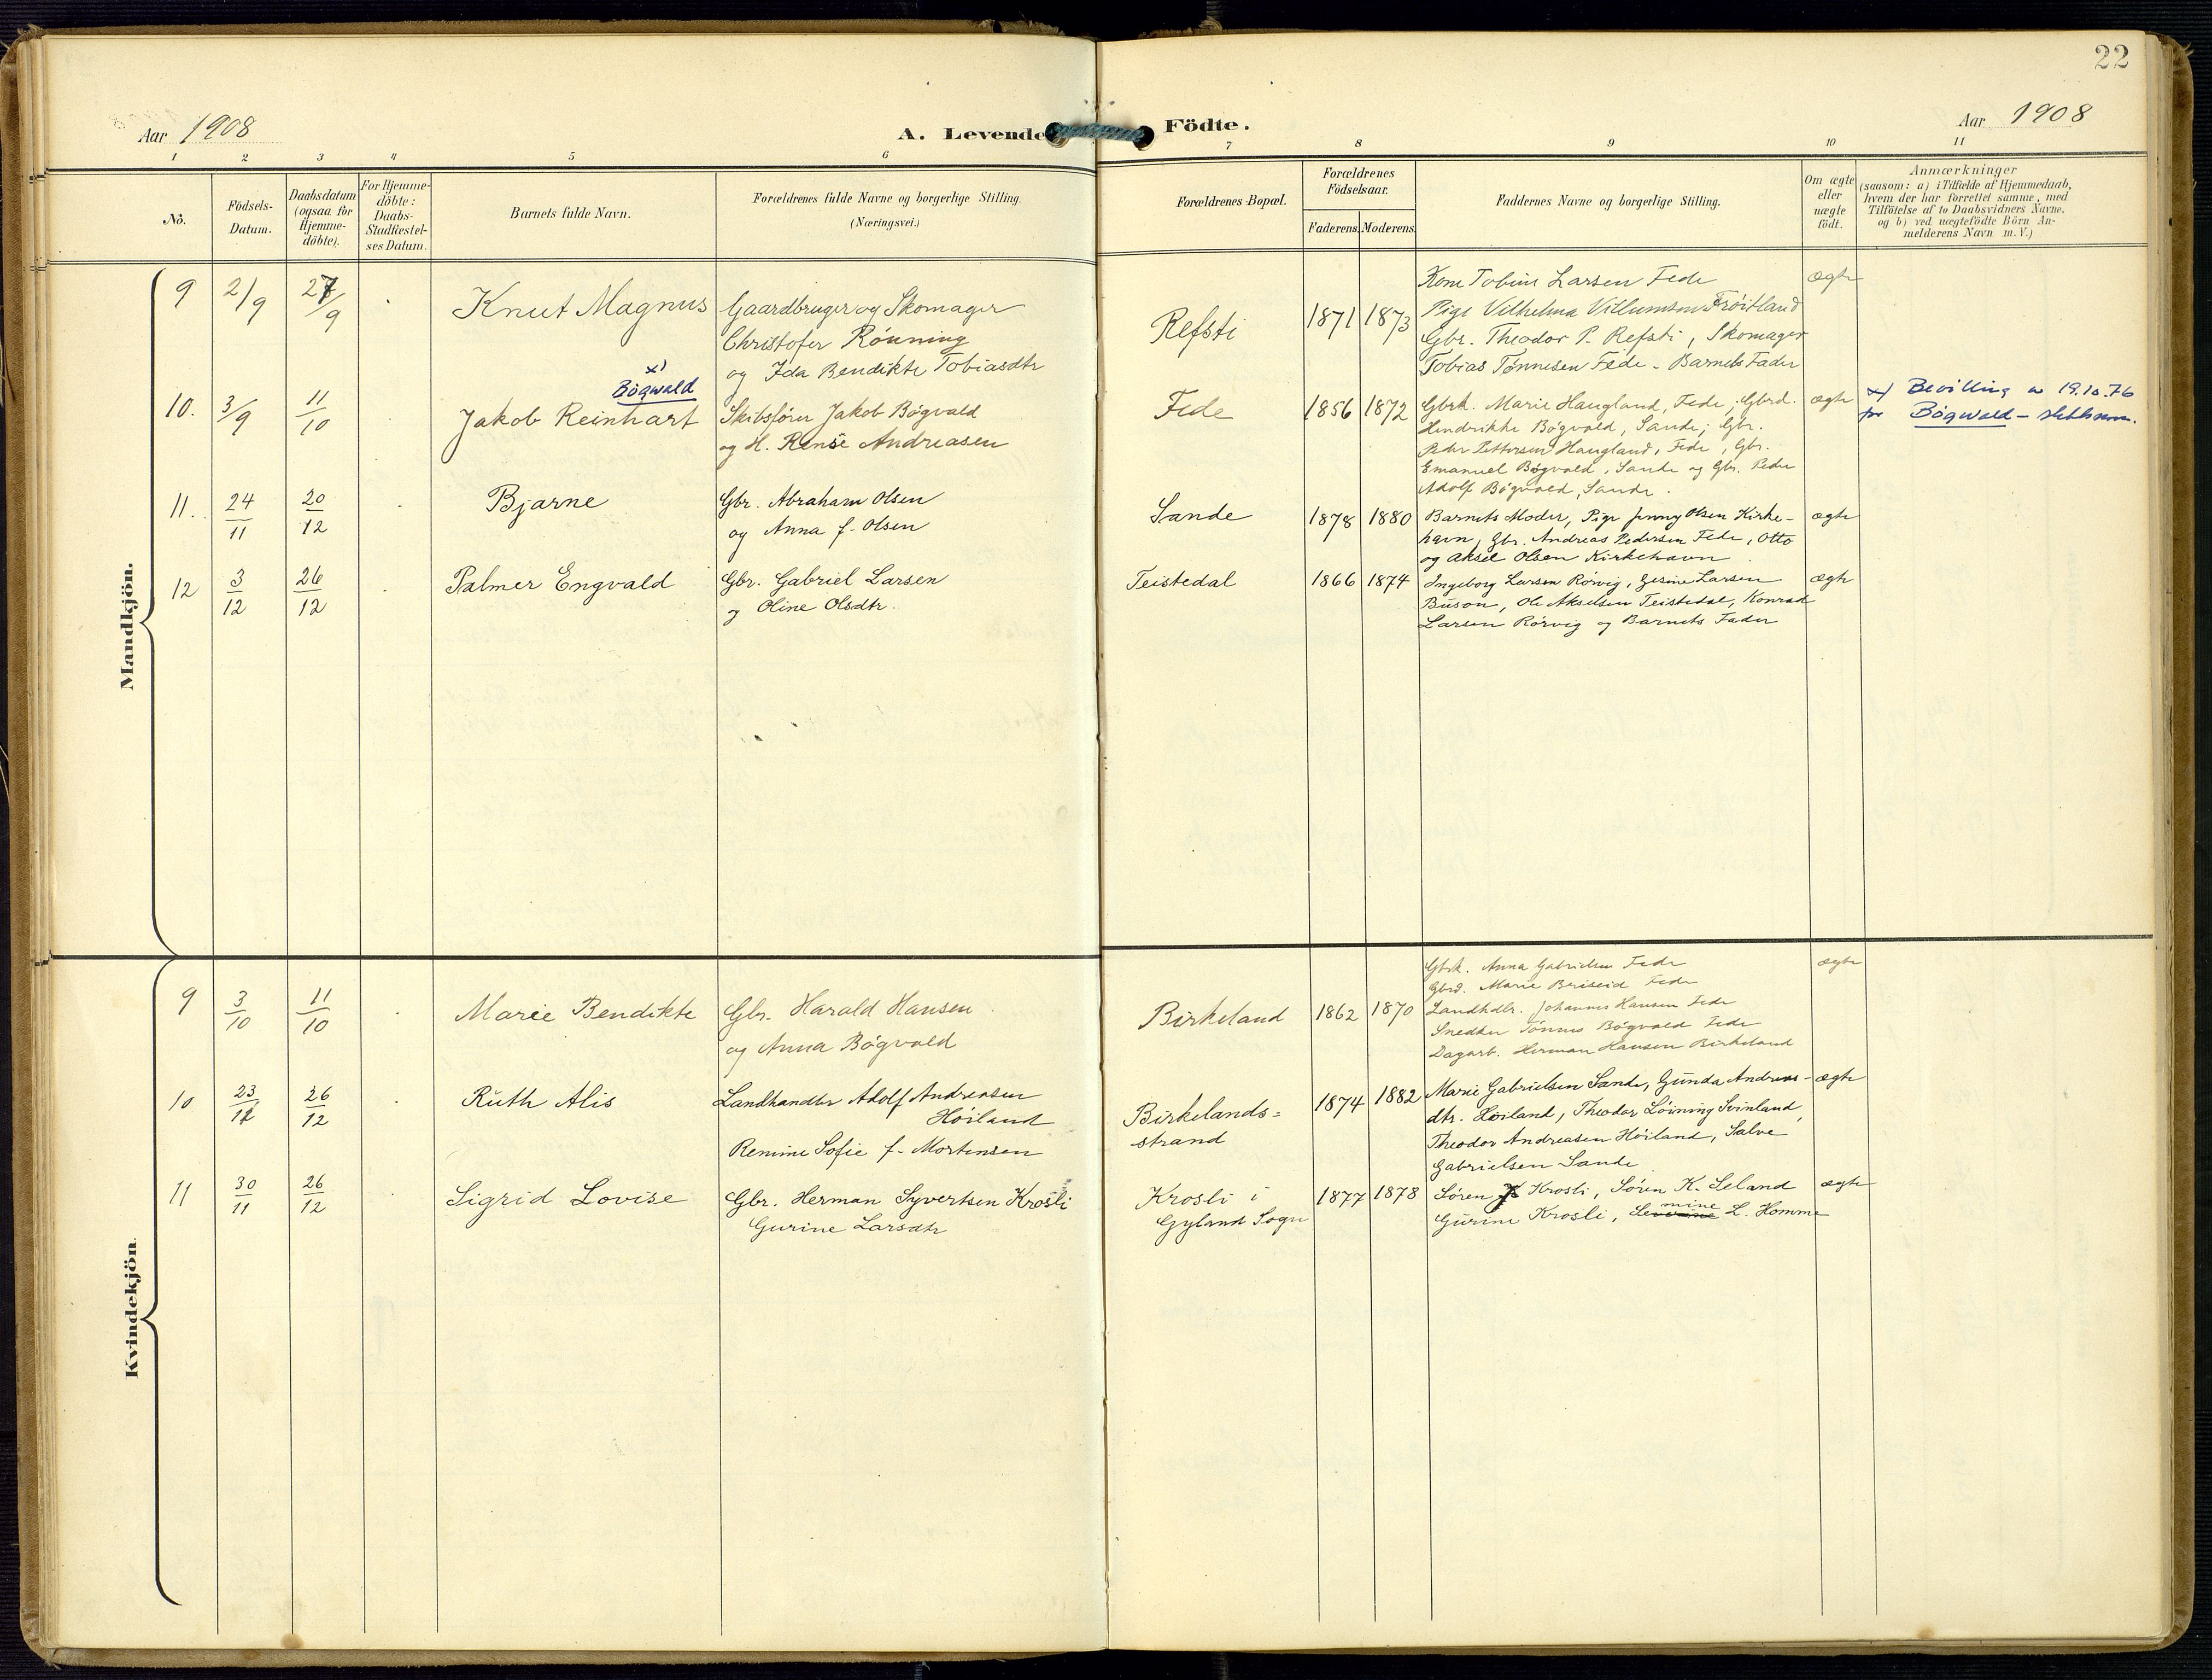 22
Aar 1908
A. Levende Födte.
Aar 1908
1 2 3 4 5 6 7 8 9 10 11
No.
Födsels-
Datum.
Daabsdatum
(ogsaa for
Hjemme-
döbte).
For Hjemme-
döbte:
Daabs-
Stadfæstel-
ses Datum.
Barnets fulde Navn.
Forældrenes fulde Navne og borgerlige Stilling.
(Næringsvei.)
Forældrenes Bopæl.
Forældrenes
Födselsaar.
Faderens. Moderens.
Faddernes Navne og borgerlige Stilling.
Om ægte
eller
uægte
födt.
Anmærkninger
(saasom: a) i Tilfælde af Hjemmedaab,
hvem der har forrettet samme, med
Tilföielse af to Daabsvidners Navne.
og b) ved uægtefödte Börn An-
melderens Navn m. V.)
Mandkjön.
9 2/9 27/9 Knut Magnus
Gaardbruger og Skomager
Christofer Rönning
og Ida Bendikte Tobiasdtr
Refsti 1871 1873
Kone Tobine Larsen Fede
Pige Vilhelma Villumsen Fröitland
Gbr. Theodor P. Refsti, Skomager
Tobias Tönnesen Fede - Barnets Fader
ægte
10. 3/9 11/10
x)
Bøgwald
Jakob Reinhart
Skibsförer Jakob Bögvald
og H. Rense Andreasen
Fede 1856 1872
Gbrk. Marie Haugland, Fede; Gbrd.
Hendrikke Bögvald, Sande; Gbr.
Peder Pettersen Haugland, Fede, Gbr.
Emanuel Bögvald, Sande og Gbr. Peder
Adolf Bögvald, Sande.
ægte
x) Bevilling av 19.10.76
for Bøgwald - slektsnavn.
11. 24/11 20/12 Bjarne
Gbr. Abraham Olsen
og Anna f. Olsen
Sande 1878 1880
Barnets Moder, Pige Jenny Olsen Kirke-
havn, Gbr. Andreas Pedersen Fede, Otto
og Aksel Olsen Kirkehavn.
ægte
12 3/12 26/12 Palmer Engvald
Gbr. Gabriel Larsen
og Oline Olsdtr.
Teistedal 1866 1874
Ingeborg Larsen Rörvig, Gesine Larsen
Buson, Ole Akselsen Teistedal, Konrad
Larsen Rörvig og Barnets Fader
ægte
Kvindekjön.
9 3/10 11/10 Marie Bendikte
Gbr. Harald Hansen
og Anna Bögvald
Birkeland 1862 1870
Gbrk. Anna Gabrielsen Fede
Gbrd. Marie Briseid Fede
Landhdlr. Johannes Hansen Fede
Snedker Tönnes Bögvald Fede
Dagarb. Herman Hansen Birkeland
ægte
10 23/11 26/12 Ruth Alis
Landhandler Adolf Andreasen
Höiland
Remine Sofie f. Mortensen
Birkelands=
strand
1874 1882
Marie Gabrielsen Sande, Gunda Andreas-
dtr. Höiland, Theodor Löining Svinland,
Theodor Andreasen Höiland, Salve
Gabrielsen Sande
ægte
11 30/11 26/12 Sigrid Lovise
Gbr. Herman Syvertsen Krosli
Gurine Larsdtr
Krosli i
Gyland Sogn
1877 1878
Sören Krosli, Sören K. Seland
mine
Gurine Krosli, Severine L. Homme
ægte